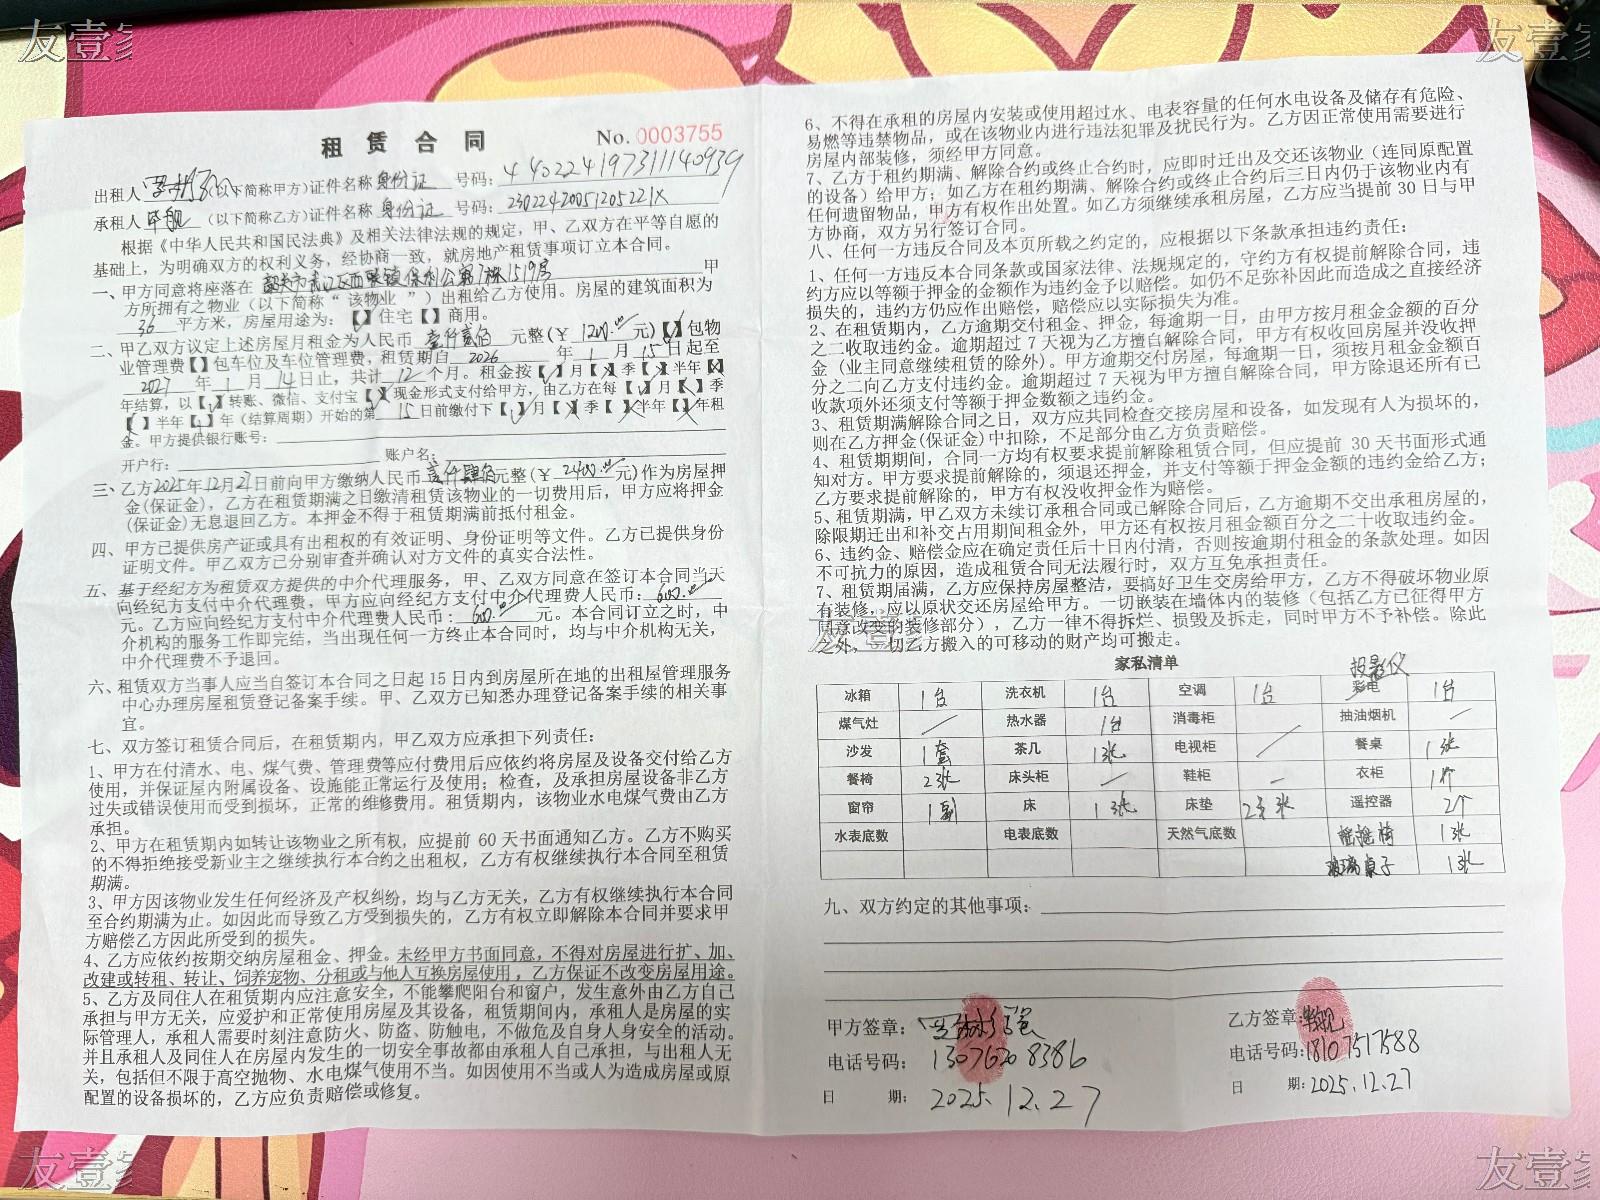 友壹家
友壹家
租赁合同 No. 0003755
出租人 (以下简称甲方)证件名称 身份证 号码: 440224197311140939
承租人 (以下简称乙方)证件名称 身份证 号码: 23022420051205221X
根据《中华人民共和国民法典》及相关法律法规的规定，甲、乙双方在平等自愿的
基础上，为明确双方的权利义务，经协商一致，就房地产租赁事项订立本合同。
一、甲方同意将座落在 韶关市武江区西联镇保利公寓7栋1519房 甲
方所拥有之物业（以下简称“该物业”）出租给乙方使用。房屋的建筑面积为
36 平方米，房屋用途为：【√】住宅【 】商用。
二、甲乙双方议定上述房屋月租金为人民币 壹仟贰佰 元整(￥ 1200.00 元)【√】包物
业管理费【 】包车位及车位管理费，租赁期自 2026 年 1 月 15 日起至
2027 年 1 月 14 日止，共计 12 个月。租金按【√】月【 】季【 】半年【 】
年结算，以【√】转账、微信、支付宝【 】现金形式支付给甲方，由乙方在每【√】月【 】季
【 】半年【 】年（结算周期）开始的第 15 日前缴付下【√】月【 】季【 】半年【 】年租
金。甲方提供银行账号：
开户行： 账户名：
三、乙方2025年12月27日前向甲方缴纳人民币 肆佰元整(￥ 2400.00 元)作为房屋押
金(保证金)，乙方在租赁期满之日缴清租赁该物业的一切费用后，甲方应将押金
(保证金)无息退回乙方。本押金不得于租赁期满前抵付租金。
四、甲方已提供房产证或具有出租权的有效证明、身份证明等文件。乙方已提供身份
证明文件。甲乙双方已分别审查并确认对方文件的真实合法性。
五、基于经纪方为租赁双方提供的中介代理服务，甲、乙双方同意在签订本合同当天
向经纪方支付中介代理费，甲方应向经纪方支付中介代理费人民币：600.00
元。乙方应向经纪方支付中介代理费人民币：600.00 元。本合同订立之时，中
介机构的服务工作即完结，当出现任何一方终止本合同时，均与中介机构无关，
中介代理费不予退回。
六、租赁双方当事人应当自签订本合同之日起15日内到房屋所在地的出租屋管理服务
中心办理房屋租赁登记备案手续。甲、乙双方已知悉办理登记备案手续的相关事
宜。
七、双方签订租赁合同后，在租赁期内，甲乙双方应承担下列责任：
1、甲方在付清水、电、煤气费、管理费等应付费用后应依约将房屋及设备交付给乙方
使用，并保证屋内附属设备、设施能正常运行及使用；检查，及承担房屋设备非乙方
过失或错误使用而受到损坏，正常的维修费用。租赁期内，该物业水电煤气费由乙方
承担。
2、甲方在租赁期内如转让该物业之所有权，应提前60天书面通知乙方。乙方不购买
的不得拒绝接受新业主之继续执行本合约之出租权，乙方有权继续执行本合同至租赁
期满。
3、甲方因该物业发生任何经济及产权纠纷，均与乙方无关，乙方有权继续执行本合同
至合约期满为止。如因此而导致乙方受到损失的，乙方有权立即解除本合同并要求甲
方赔偿乙方因此所受到的损失。
4、乙方应依约按期交纳房屋租金、押金。未经甲方书面同意，不得对房屋进行扩、加、
改建或转租、转让、饲养宠物、分租或与他人互换房屋使用，乙方保证不改变房屋用途。
5、乙方及同住人在租赁期内应注意安全，不能攀爬阳台和窗户，发生意外由乙方自己
承担与甲方无关，应爱护和正常使用房屋及其设备，租赁期间内，承租人是房屋的实
际管理人，承租人需要时刻注意防火、防盗、防触电，不做危及自身人身安全的活动。
并且承租人及同住人在房屋内发生的一切安全事故都由承租人自己承担，与出租人无
关，包括但不限于高空抛物、水电煤气使用不当。如因使用不当或人为造成房屋或原
配置的设备损坏的，乙方应负责赔偿或修复。
6、不得在承租的房屋内安装或使用超过水、电表容量的任何水电设备及储存有危险、
易燃等违禁物品，或在该物业内进行违法犯罪及扰民行为。乙方因正常使用需要进行
房屋内部装修，须经甲方同意。
7、乙方于租约期满、解除合约或终止合约时，应即时迁出及交还该物业（连同原配置
的设备）给甲方；如乙方在租约期满、解除合约或终止合约后三日内仍于该物业内有
任何遗留物品，甲方有权作出处置。如乙方须继续承租房屋，乙方应当提前30日与甲
方协商，双方另行签订合同。
八、任何一方违反合同及本页所载之约定的，应根据以下条款承担违约责任：
1、任何一方违反本合同条款或国家法律、法规规定的，守约方有权提前解除合同，违
约方应以等额于押金的金额作为违约金予以赔偿。如仍不足弥补因此而造成之直接经济
损失的，违约方仍应作出赔偿，赔偿应以实际损失为准。
2、在租赁期内，乙方逾期交付租金、押金，每逾期一日，由甲方按月租金金额的百分
之二收取违约金。逾期超过7天视为乙方擅自解除合同，甲方有权收回房屋并没收押
金（业主同意继续租赁的除外）。甲方逾期交付房屋，每逾期一日，须按月租金金额百
分之二向乙方支付违约金。逾期超过7天视为甲方擅自解除合同，甲方除退还所有已
收款项外还须支付等额于押金数额之违约金。
3、租赁期满解除合同之日，双方应共同检查交接房屋和设备，如发现有人为损坏的，
则在乙方押金(保证金)中扣除，不足部分由乙方负责赔偿。
4、租赁期期间，合同一方均有权要求提前解除租赁合同，但应提前30天书面形式通
知对方。甲方要求提前解除的，须退还押金，并支付等额于押金金额的违约金给乙方；
乙方要求提前解除的，甲方有权没收押金作为赔偿。
5、租赁期满，甲乙双方未续订承租合同或已解除合同后，乙方逾期不交出承租房屋的，
除限期迁出和补交占用期间租金外，甲方还有权按月租金额百分之二十收取违约金。
6、违约金、赔偿金应在确定责任后十日内付清，否则按逾期付租金的条款处理。如因
不可抗力的原因，造成租赁合同无法履行时，双方互免承担责任。
7、租赁期届满，乙方应保持房屋整洁，要搞好卫生交房给甲方，乙方不得破坏物业原
有装修，应以原状交还房屋给甲方。一切嵌装在墙体内的装修（包括乙方已征得甲方
同意改变的装修部分），乙方一律不得拆烂、损毁及拆走，同时甲方不予补偿。除此
之外，一切乙方搬入的可移动的财产均可搬走。
友壹家
家私清单
投影仪
冰箱 1台 洗衣机 1台 空调 1台 彩电 1台
煤气灶 / 热水器 1台 消毒柜 抽油烟机 /
沙发 1套 茶几 1张 电视柜 / 餐桌 1张
餐椅 2张 床头柜 / 鞋柜 / 衣柜 1个
窗帘 1副 床 1张 床垫 2张 遥控器 2个
水表底数 电表底数 天然气底数 椅 1张
玻璃桌子 1张
九、双方约定的其他事项：
甲方签章：
电话号码：13076208386
日 期：2025.12.27
乙方签章：
电话号码：18107517588
日 期：2025.12.27
友壹家
友壹家